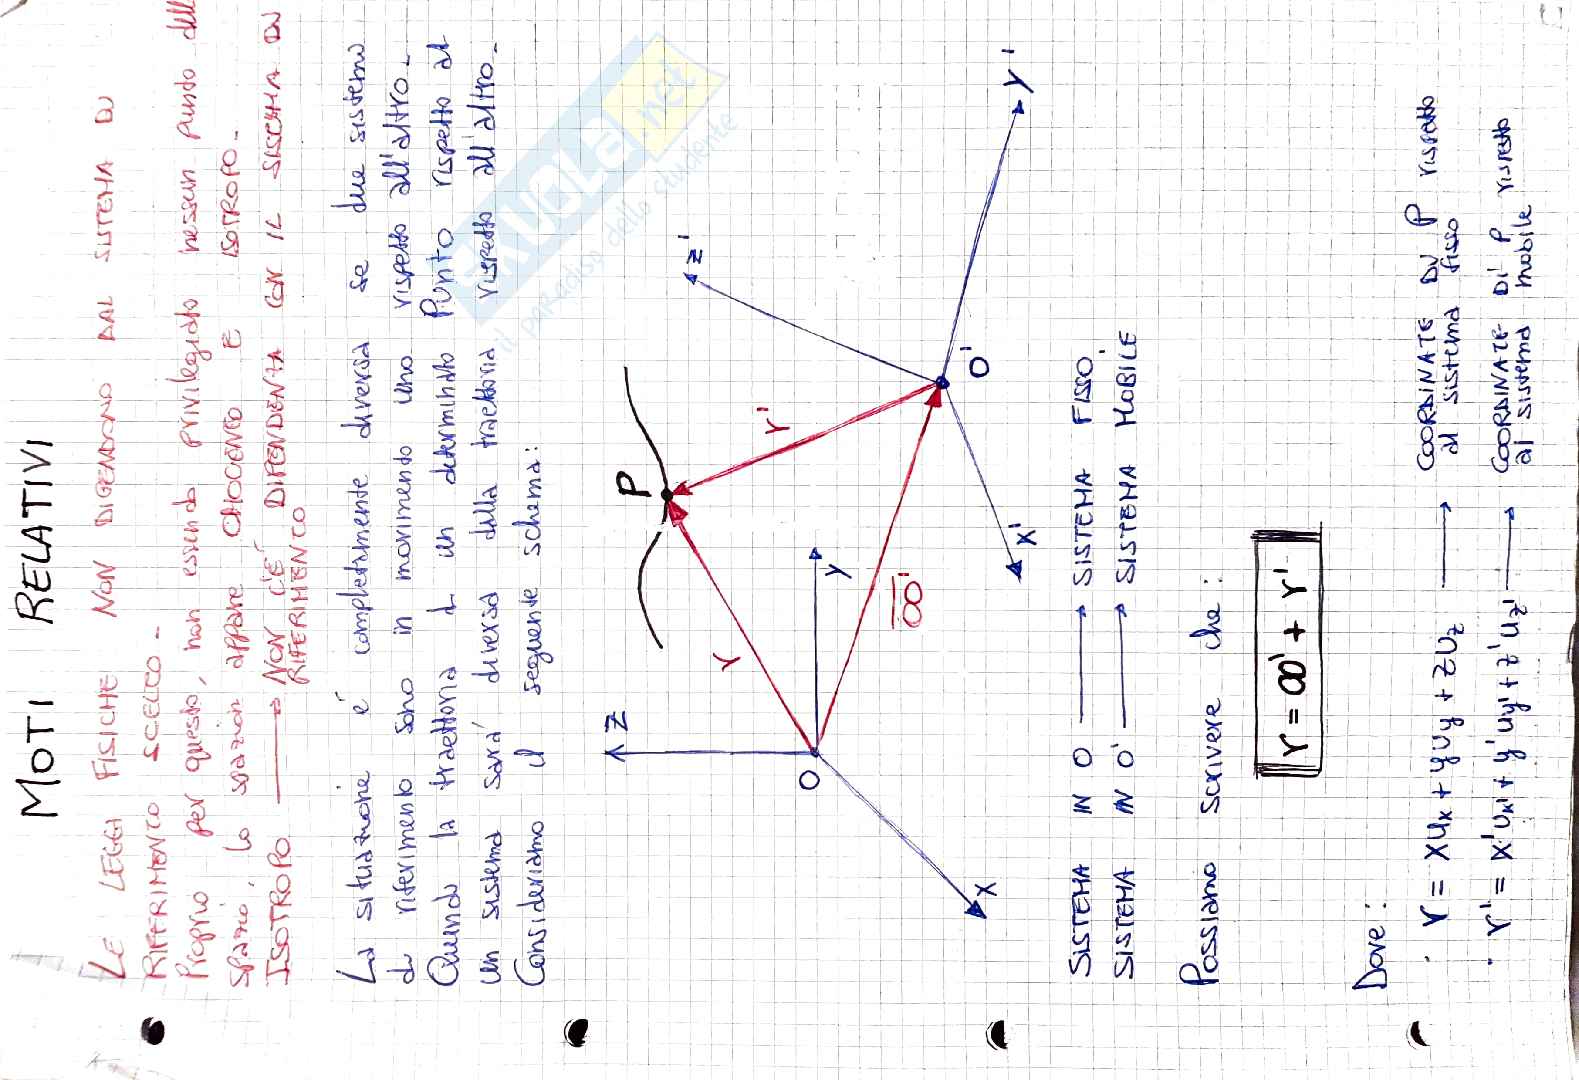 MOTI RELATIVI
LE LEGGI FISICHE NON DIPENDONO DAL SISTEMA DI
RIFERIMENTO SCELTO -
Proprio per questo, non essendo privilegiato nessun punto dello
spazio, lo spazio appare OMOGENEO E ISOTROPO -
ISOTROPO → NON C'É DIPENDENZA CON IL SISTEMA DI
RIFERIMENTO
La situazione é completamente diversa se due sistemi
di riferimento sono in movimento uno rispetto all'altro -
Quando la traettoria di un determinato Punto rispetto ad
un sistema sará diversa dalla traettoria rispetto all'altro -
Consideriamo il seguente schema:
P
z
r
r'
z'
O
y
OO'
O'
y'
x
x'
SISTEMA IN O → SISTEMA FISSO
SISTEMA IN O' → SISTEMA MOBILE
Possiamo scrivere che:
r = OO' + r'
Dove:
· r = xux + yuy + zuz → COORDINATE DI P rispetto
al sistema fisso
· r' = x'ux' + y'uy' + z'uz' → COORDINATE DI P rispetto
al sistema mobile
SKUOLA.net
il paradiso dello studente